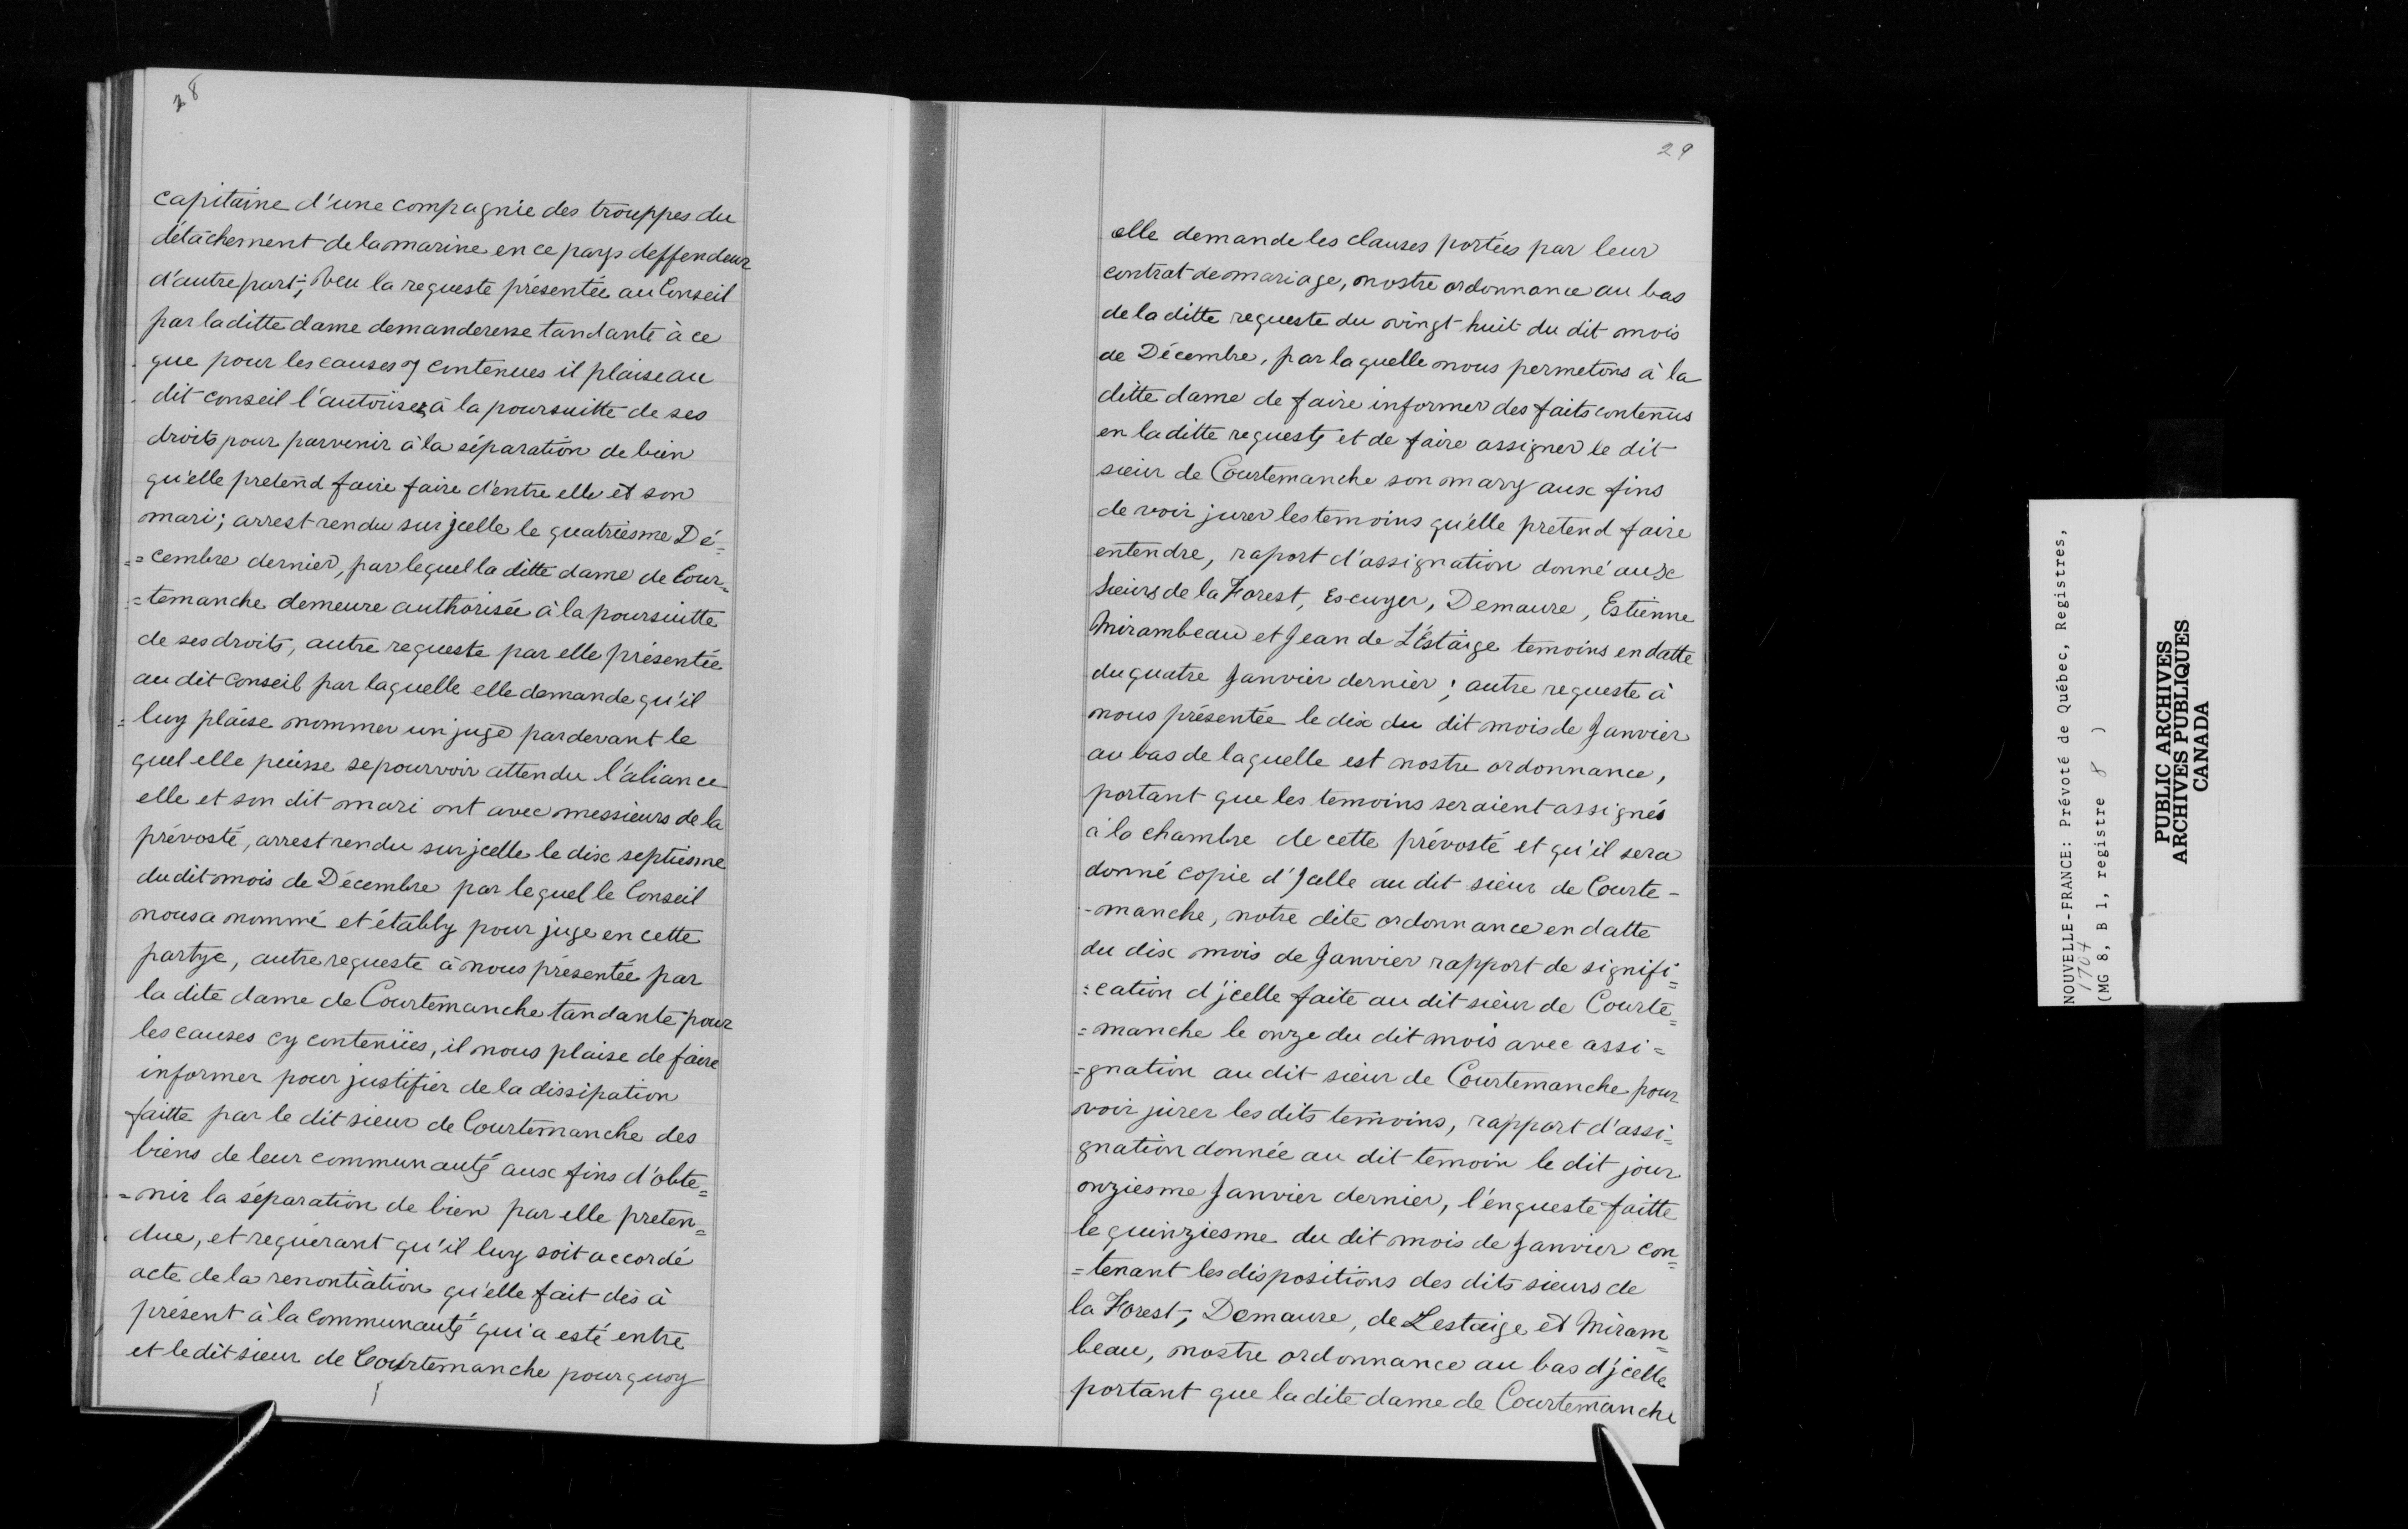 28
capitaine d'une compagnie des trouppes du
détachement de la marine en ce pays deffendeur
d'autre part; Veu la requeste présentée au Conseil
par la ditte dame demanderesse tandante à ce
que pour les causes y contenues il plaise au
dit conseil l'autoriser à la poursuitte de ses
droits pour parvenir à la séparation de bien
qu'elle pretend faire faire d'entre elle et son
mari; arrest rendu sur jcelle le quatriesme Dé=
=cembre dernier, par lequel la ditte dame de Cour=
=temanche demeure authorisée à la poursuitte
de ses droits, autre requeste par elle présentée
au dit conseil par laquelle elle demande qu'il
=luy plaise nommer un juge pardevant le
quel elle puisse se pourvoir attendu l'aliance
elle et son dit mari ont avec messieurs de la
prévosté, arrest rendu sur jcelle le dix septiesme
du dit mois de Décembre par lequel le Conseil
nous a nommé et étably pour juge en cette
partye, autre requeste à nous présentée par
la dite dame de Courtemanche tandante pour
les causes cy contenües, il nous plaise de faire
informer pour justifier de la dissipation
faitte par le dit sieur de Courtemanche des
biens de leur communauté aux fins d'obte=
=nir la séparation de bien par elle preten=
due, et requérant qu'il luy soit accordé
acte de la renontiation qu'elle fait dès à
présent à la communauté qui a esté entre
et le dit sieur de Courtemanche pourquoy
29
elle demande les clauses portées par leur
contrat de mariage, nostre ordonnance au bas
de la ditte requeste du vingt huit du dit mois
de Décembre, par laquelle nous permetons à la
ditte dame de faire informer des faits contenus
en la ditte requeste et de faire assigner le dit
sieur de Courtemanche son mary aux fins
de voir jurer les temoins qu'elle pretend faire
entendre, raport d'assignation donné aux
Sieurs de la Forest, Escuyer, Demaure, Estienne
Mirambeau et Jean de L'Estaige temoins en datte
du quatre Janvier dernier; autre requeste à
nous présentée le dix du dit mois de Janvier
au bas de laquelle est nostre ordonnance,
portant que les temoins seraient assignés
à la chambre de cette prévosté et qu'il sera
donné copie d'Jcelle au dit sieur de Courte-
-manche, notre dite ordonnance en datte
du dix mois de Janvier rapport de signifi=
=cation d'jcelle faite au dit sieur de Courte=
=manche le onze du dit mois avec assi=
=gnation au dit sieur de Courtemanche pour
voir jurer les dits temoins, rapport d'assi=
gnation donnée au dit temoin le dit jour
onziesme Janvier dernier, l'enqueste faitte
le quinziesme du dit mois de Janvier con=
=tenant les dispositions des dits sieurs de
la Forest, Demaure, de Lestaige et Miram=
beau, nostre ordonnance au bas d'jcelle
portant que la dite dame de Courtemanche
NOUVELLE-FRANCE: Prévoté de Québec, Registres,
1704
(MG 8, B 1, registre 8 )
PUBLIC ARCHIVES
ARCHIVES PUBLIQUES
CANADA